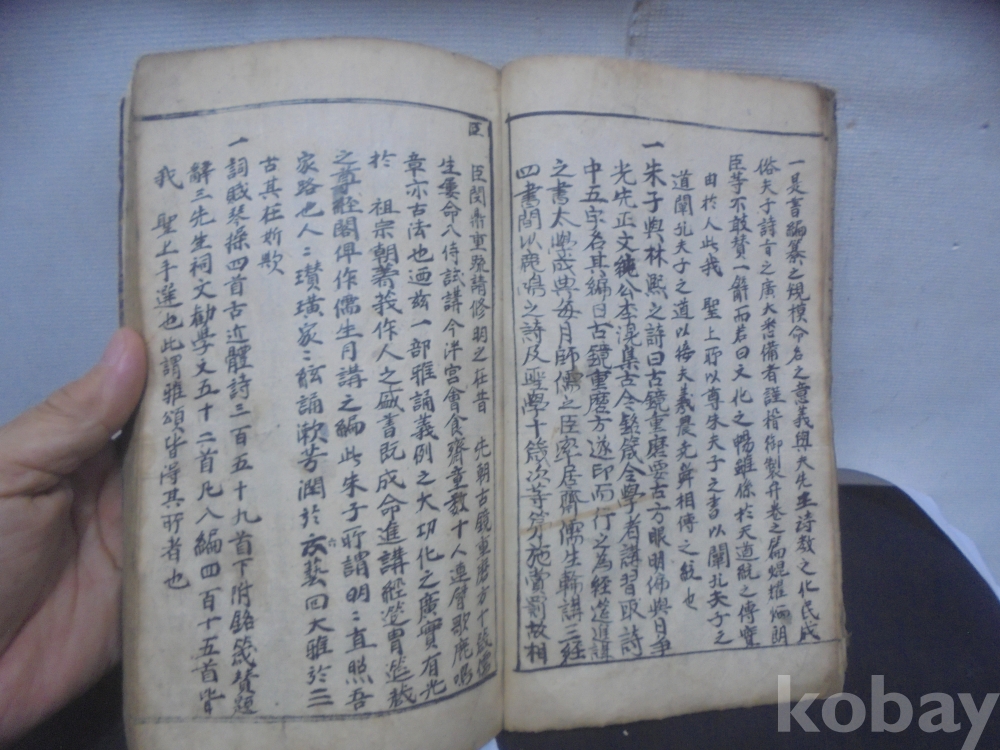 一是書編纂之規模命名之意義與夫先生詩教之化民成
俗夫子詩旨之廣大悉備者謹稽御製弁卷之篇焜燿炳朗
臣等不敢贊一辭而若曰文化之暢雖係於天道統之傳實
由於人此我 聖上所以尊朱夫子之書以闡孔夫子之
道闡孔夫子之道以接夫羲農堯舜相傳之敍也
一朱子與林熙之詩曰古鏡重磨要古方眼明偏與日爭
光先正文純公李滉集古今銘箴令學者講習取詩
中五字名其編曰古鏡重磨方遂印而行之為經筵進講
之書太學或與每月師儒之臣率居齋儒生輪講三經
四書間以鹿鳴之詩及聖學十箴次等第施賞罰故相
臣
臣閔鼎重疏請修明之在昔 先朝古鏡重磨方下諭儒
生屢命入侍談講今泮宮會食齋童數十人連臂歌鹿鳴
章亦古法也迺玆一部雅誦義例之大功化之廣實有光
於 祖宗朝菁莪作人之盛書旣成命進講經筵胄筵載
之尊經閣俾作儒生月講之編此朱子所謂明〻直照吾
家路也人〻瓚璜家〻絃誦漱芳潤於六藝回大雅於三
古其在斯歟
一詞賦琴操四首古近體詩三百五十九首下附銘箴贊題
辭三先生祠文勸學文五十二首凡八編四百十五首皆
我 聖上手選也此謂雅頌皆得其所者也
kobay